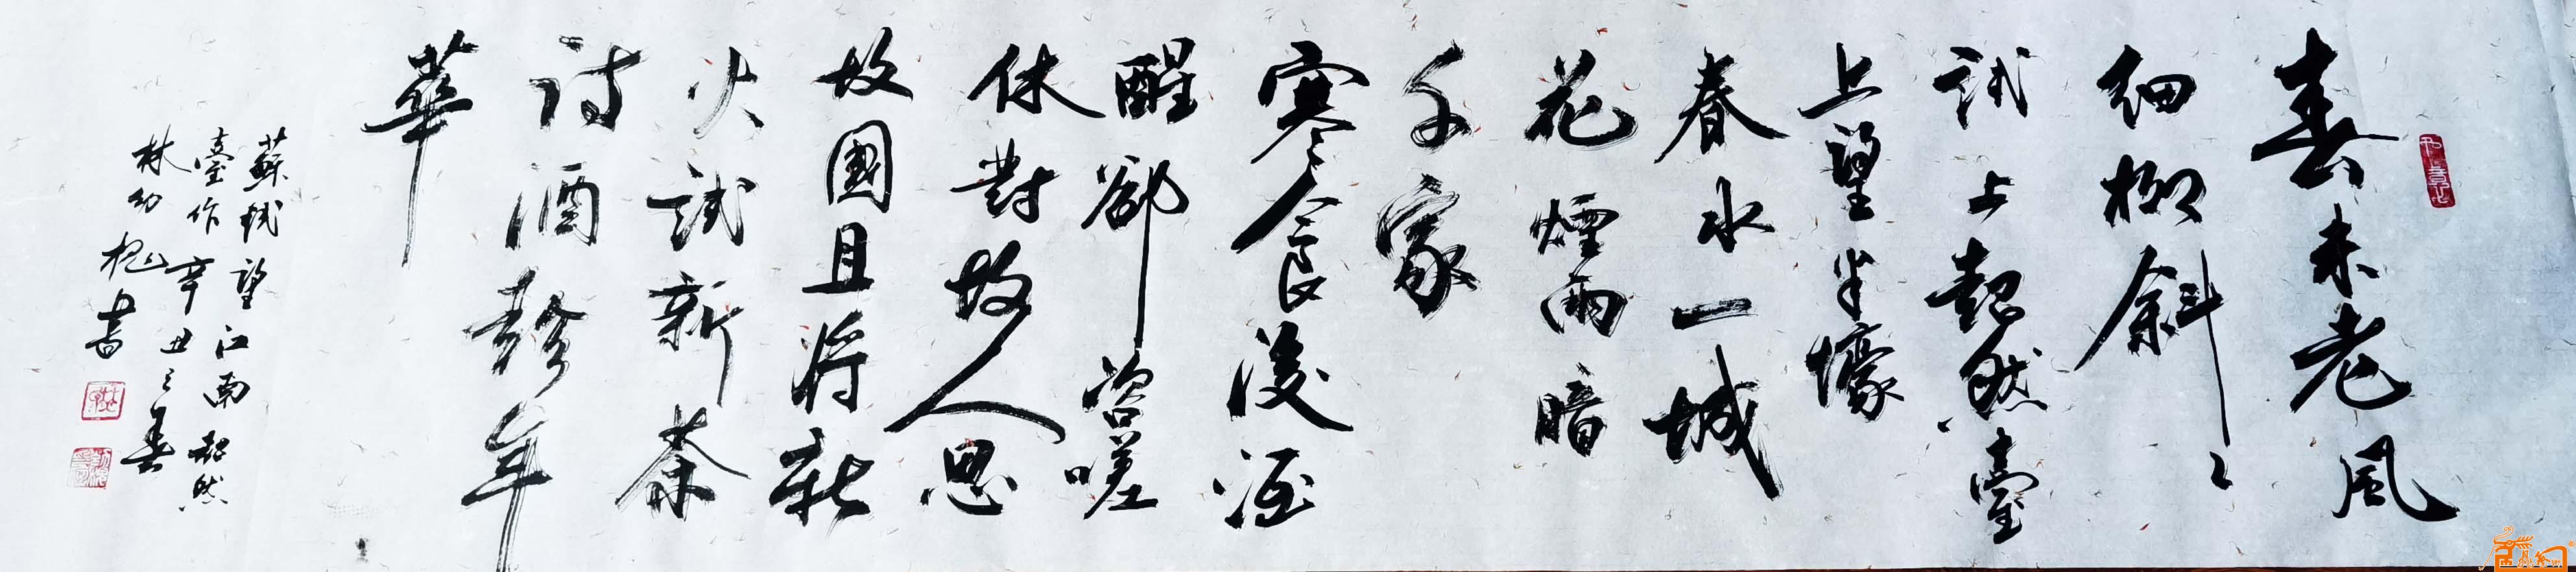 春未老風
細柳斜〻
試上超然臺
上望半壕
春水一城
花煙雨暗
千家
寒食後酒
醒卻咨嗟
休對故人思
故國且將新
火試新茶
詩酒趁年
華
蘇軾望江南超然
臺作辛丑之春
林幼槐書